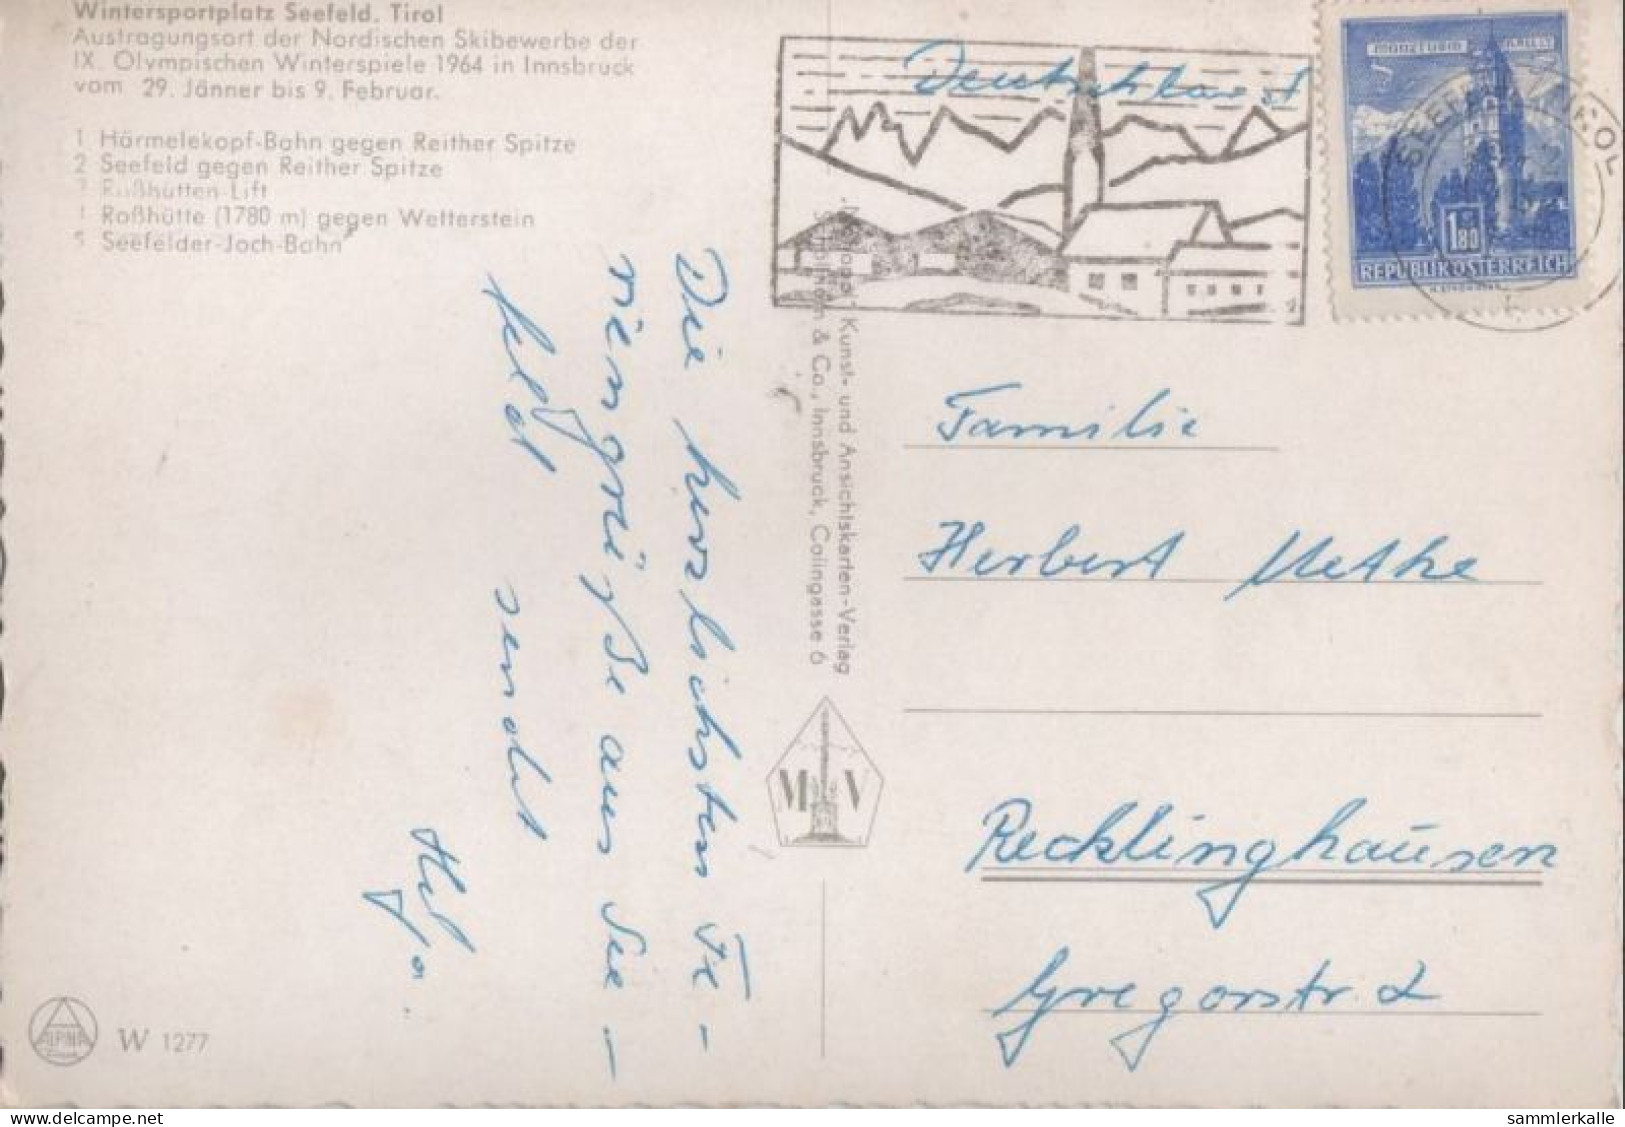 Wintersportplatz Seefeld. Tirol
Austragungsort der Nordischen Skibewerbe der
IX. Olympischen Winterspiele 1964 in Innsbruck
vom 29. Jänner bis 9. Februar.
1 Härmelekopf-Bahn gegen Reither Spitze
2 Seefeld gegen Reither Spitze
3 Roßhütten-Lift
4 Roßhütte (1780 m) gegen Wetterstein
5 Seefelder-Joch-Bahn
Die herzlichsten Fe-
riengrüße aus See-
feld sendet
Helga.
Kunst- und Ansichtskarten-Verlag
& Co., Innsbruck, Colingasse 6
M V
ALPINA
W 1277
Deutschland
SEEFELD TIROL
MÜNZTURM
1.80
REPUBLIK ÖSTERREICH
Familie
Herbert Methe
Recklinghausen
Gregorstr. 2
delcampe.net
sammlerkalle